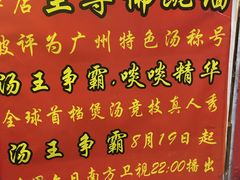 店至尊佛跳墙
被评为广州特色汤称号
汤王争霸,啖啖精华
全球首档煲汤竞技真人秀
汤王争霸8月19日起
每日南方卫视22:00播出